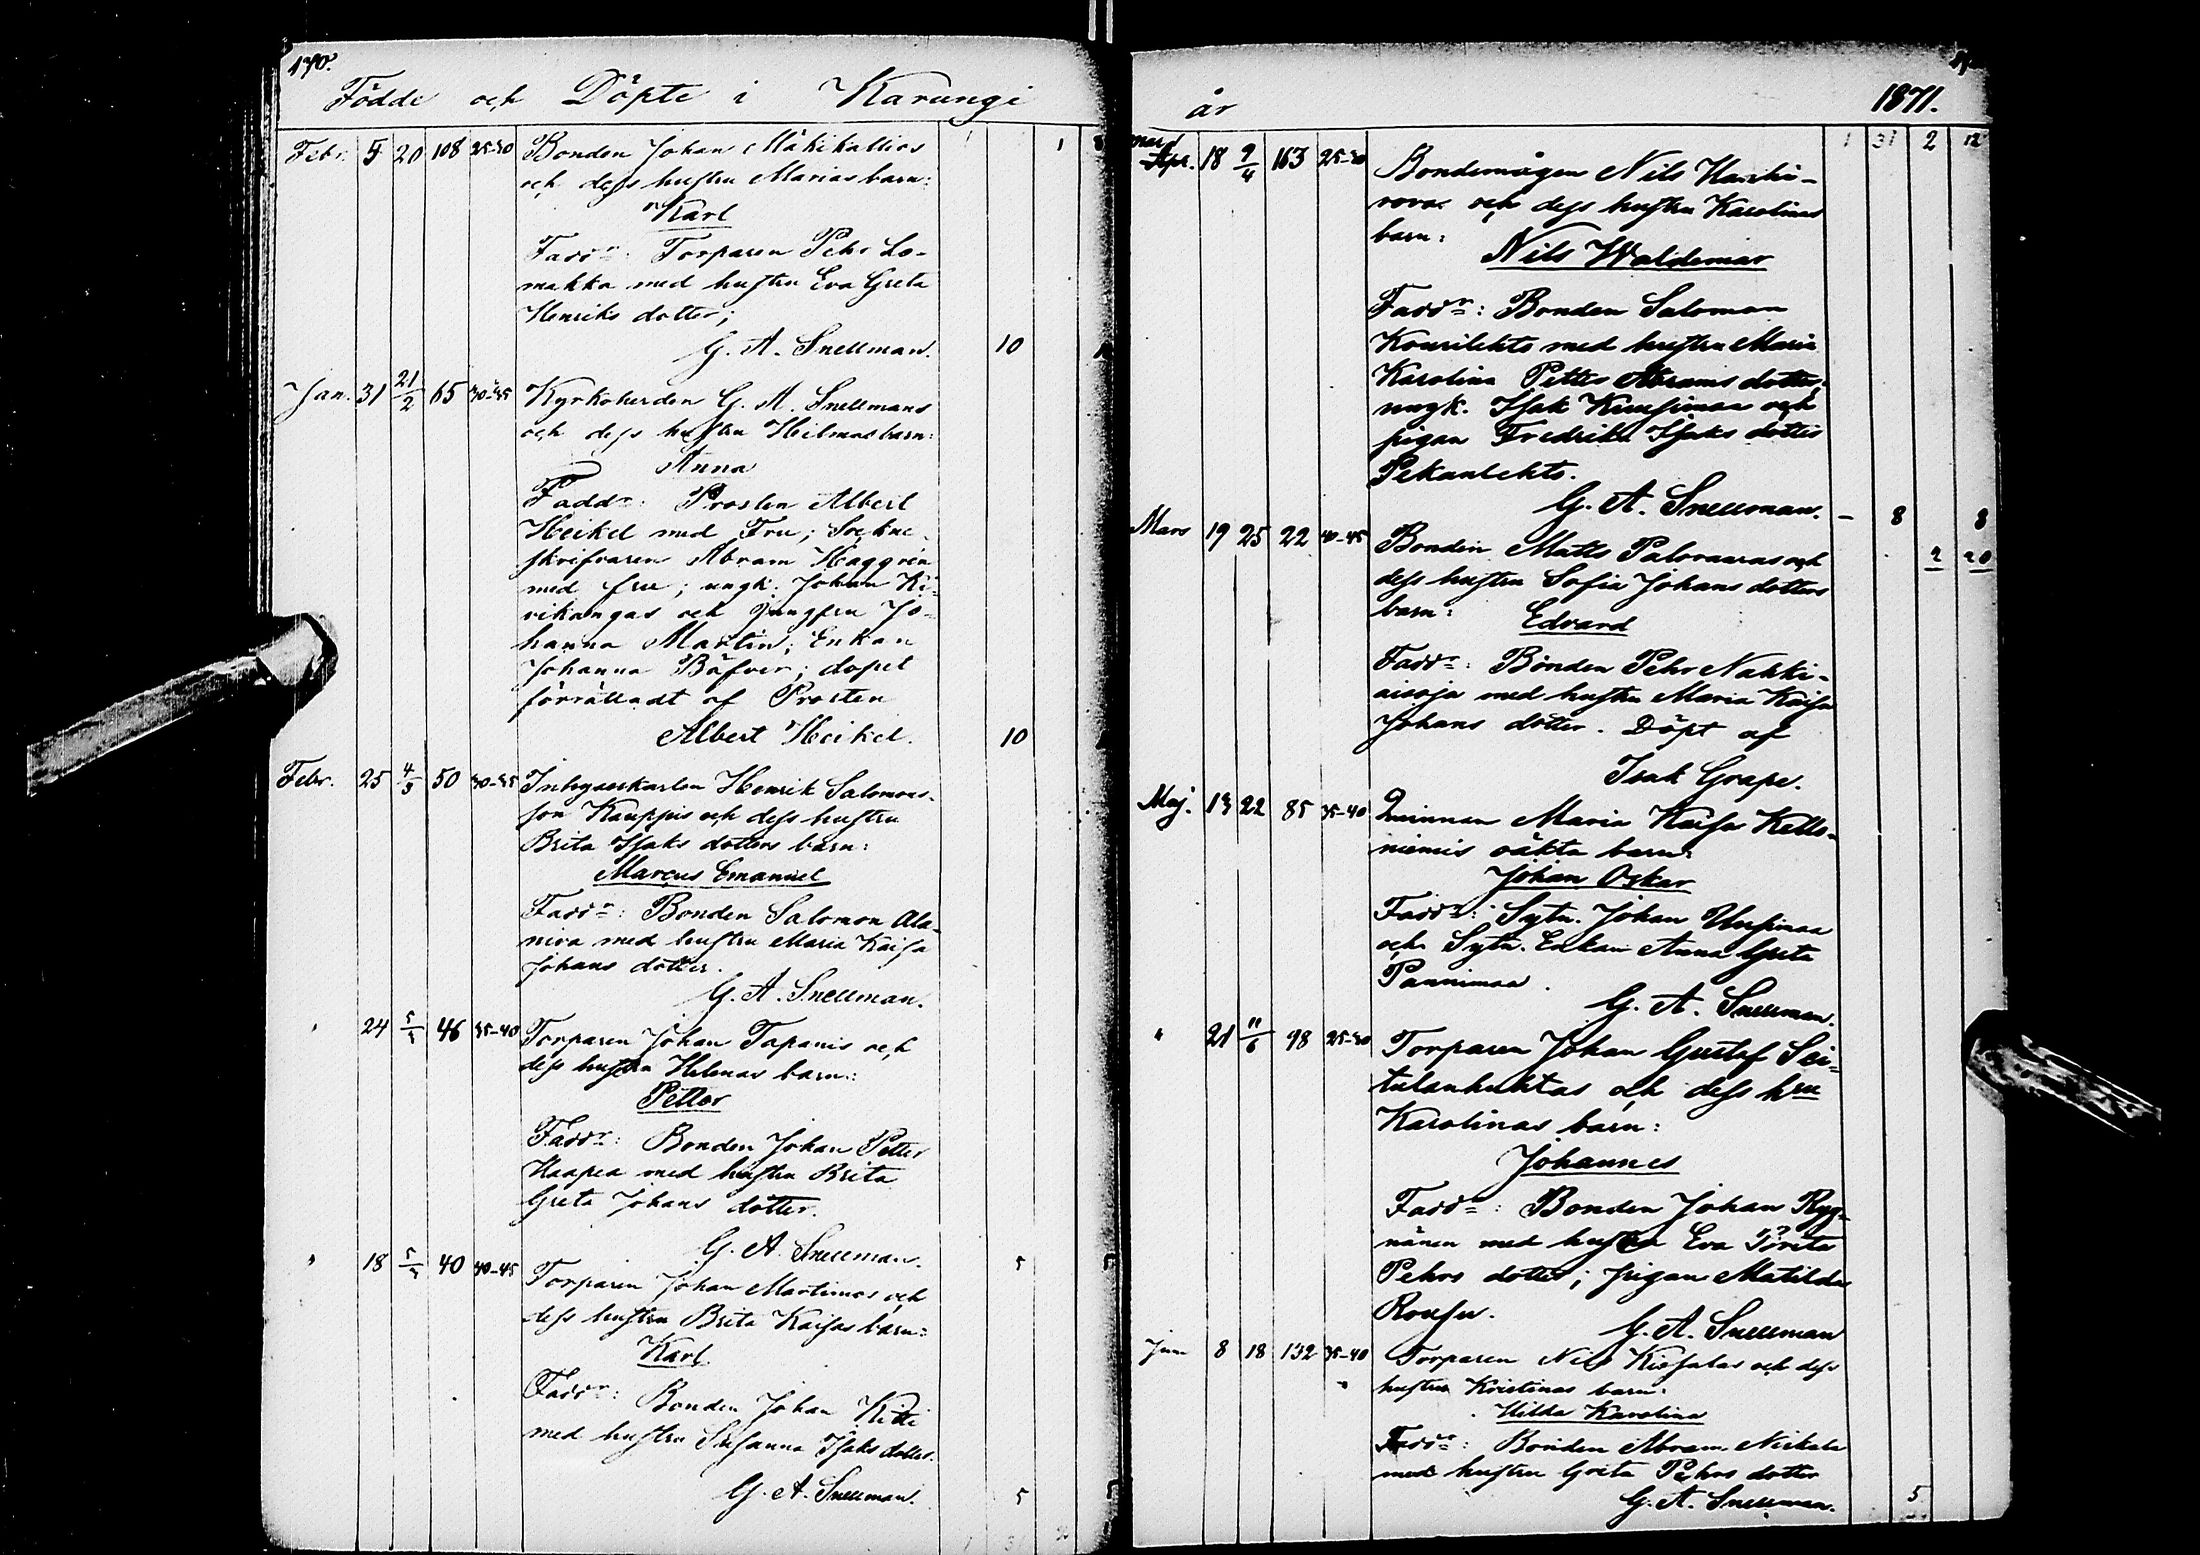 170.
Födde och Döpte i Karungi
Febr. 5 20 108 25-30 Bonden Johan Mäkikallios
och dess hustru Marias barn:
Karl
Faddr: Torparen Pehr Lo-
makka med hustru Eva Greta
Henriks dotter;
G. A. Snellman. 10
Jan. 31 21/2 65 30-35 Kyrkoherden G. A. Snellmans
och dess hustru Hilmas barn:
Anna
Faddr: Prosten Albert
Heikel med Fru; Sockne-
skrifvaren Abram Häggrén
med fru; ungk. Johan Ki-
vikangas och Jungfru Jo-
hanna Martin; Enkan
Johanna Bäfver; dopet
förrättadt af Prosten
Albert Heikel. 10
Febr. 25 4/3 50 30-35 Inhyseskarlen Henrik Salomons-
son Kauppis och dess hustru
Brita Isaks dotters barn:
Marcus Emanuel
Faddr: Bonden Salomon Ala-
niva med hustru Maria Kaisa
Johans dotter.
G. A. Snellman.
" 24 5/3 46 35-40 Torparen Johan Tapanis och
dess hustru Helenas barn:
Petter
Faddr: Bonden Johan Petter
Haapea med hustru Brita
Greta Johans dotter.
G. A. Snellman. 5 5
" 18 5/3 40 40-45 Torparen Johan Martimos och
dess hustru Brita Kaisas barn:
Karl
Faddr: Bonden Johan
med hustru Susanna Isaks dotter.
G. A. Snellman. 5 5
år 1871.
mars
Apr. 18 9/4 163 25-30 Bondemågen Nils 1 31 2 12
och dess hustru Karolinas
barn:
Nils Waldemar
Faddr: Bonden Salomon
Kourilehto med hustru Maria
Karolina Petter Abrams dotter;
ungk. Isak Kuusimaa och
pigan Fredrika Isaks dotter
Pekanlehto.
G. A. Snellman. - 8 8
Mars 19 25 22 40-45 Bonden Matts Palovaaras och 2 20
dess hustru Sofia Johans dotters
barn:
Edvard
Faddr: Bonden Pehr Nakki-
aisoja med hustru Maria Kaisa
Johans dotter. Döpt af
Isak Grape.
Maj. 13 22 85 35-40 Quinnan Maria Kaisa Kello-
niemis oäkta barn:
Johan Oskar
Faddr: Sytn. Johan Uusimaa
och Sytn. Enkan Anna Greta
Pannimaa.
G. A. Snellman.
" 21 11/6 98 25-30 Torparen Johan Gustaf Sei-
tulanhuhtas och dess hru
Karolinas barn:
Johannes
Faddr: Bonden Johan Ryy-
nänen med hustru Eva Brita
Pehrs dotter; pigan Matilda
Rousu.
G. A. Snellman
Juni 8 18 132 35-40 Torparen Nils och dess
hustru Kristinas barn:
Hilda Karolina
Faddr: Bonden Abram Niskala
med hustru Greta Pehrs dotter
G. A. Snellman. 5